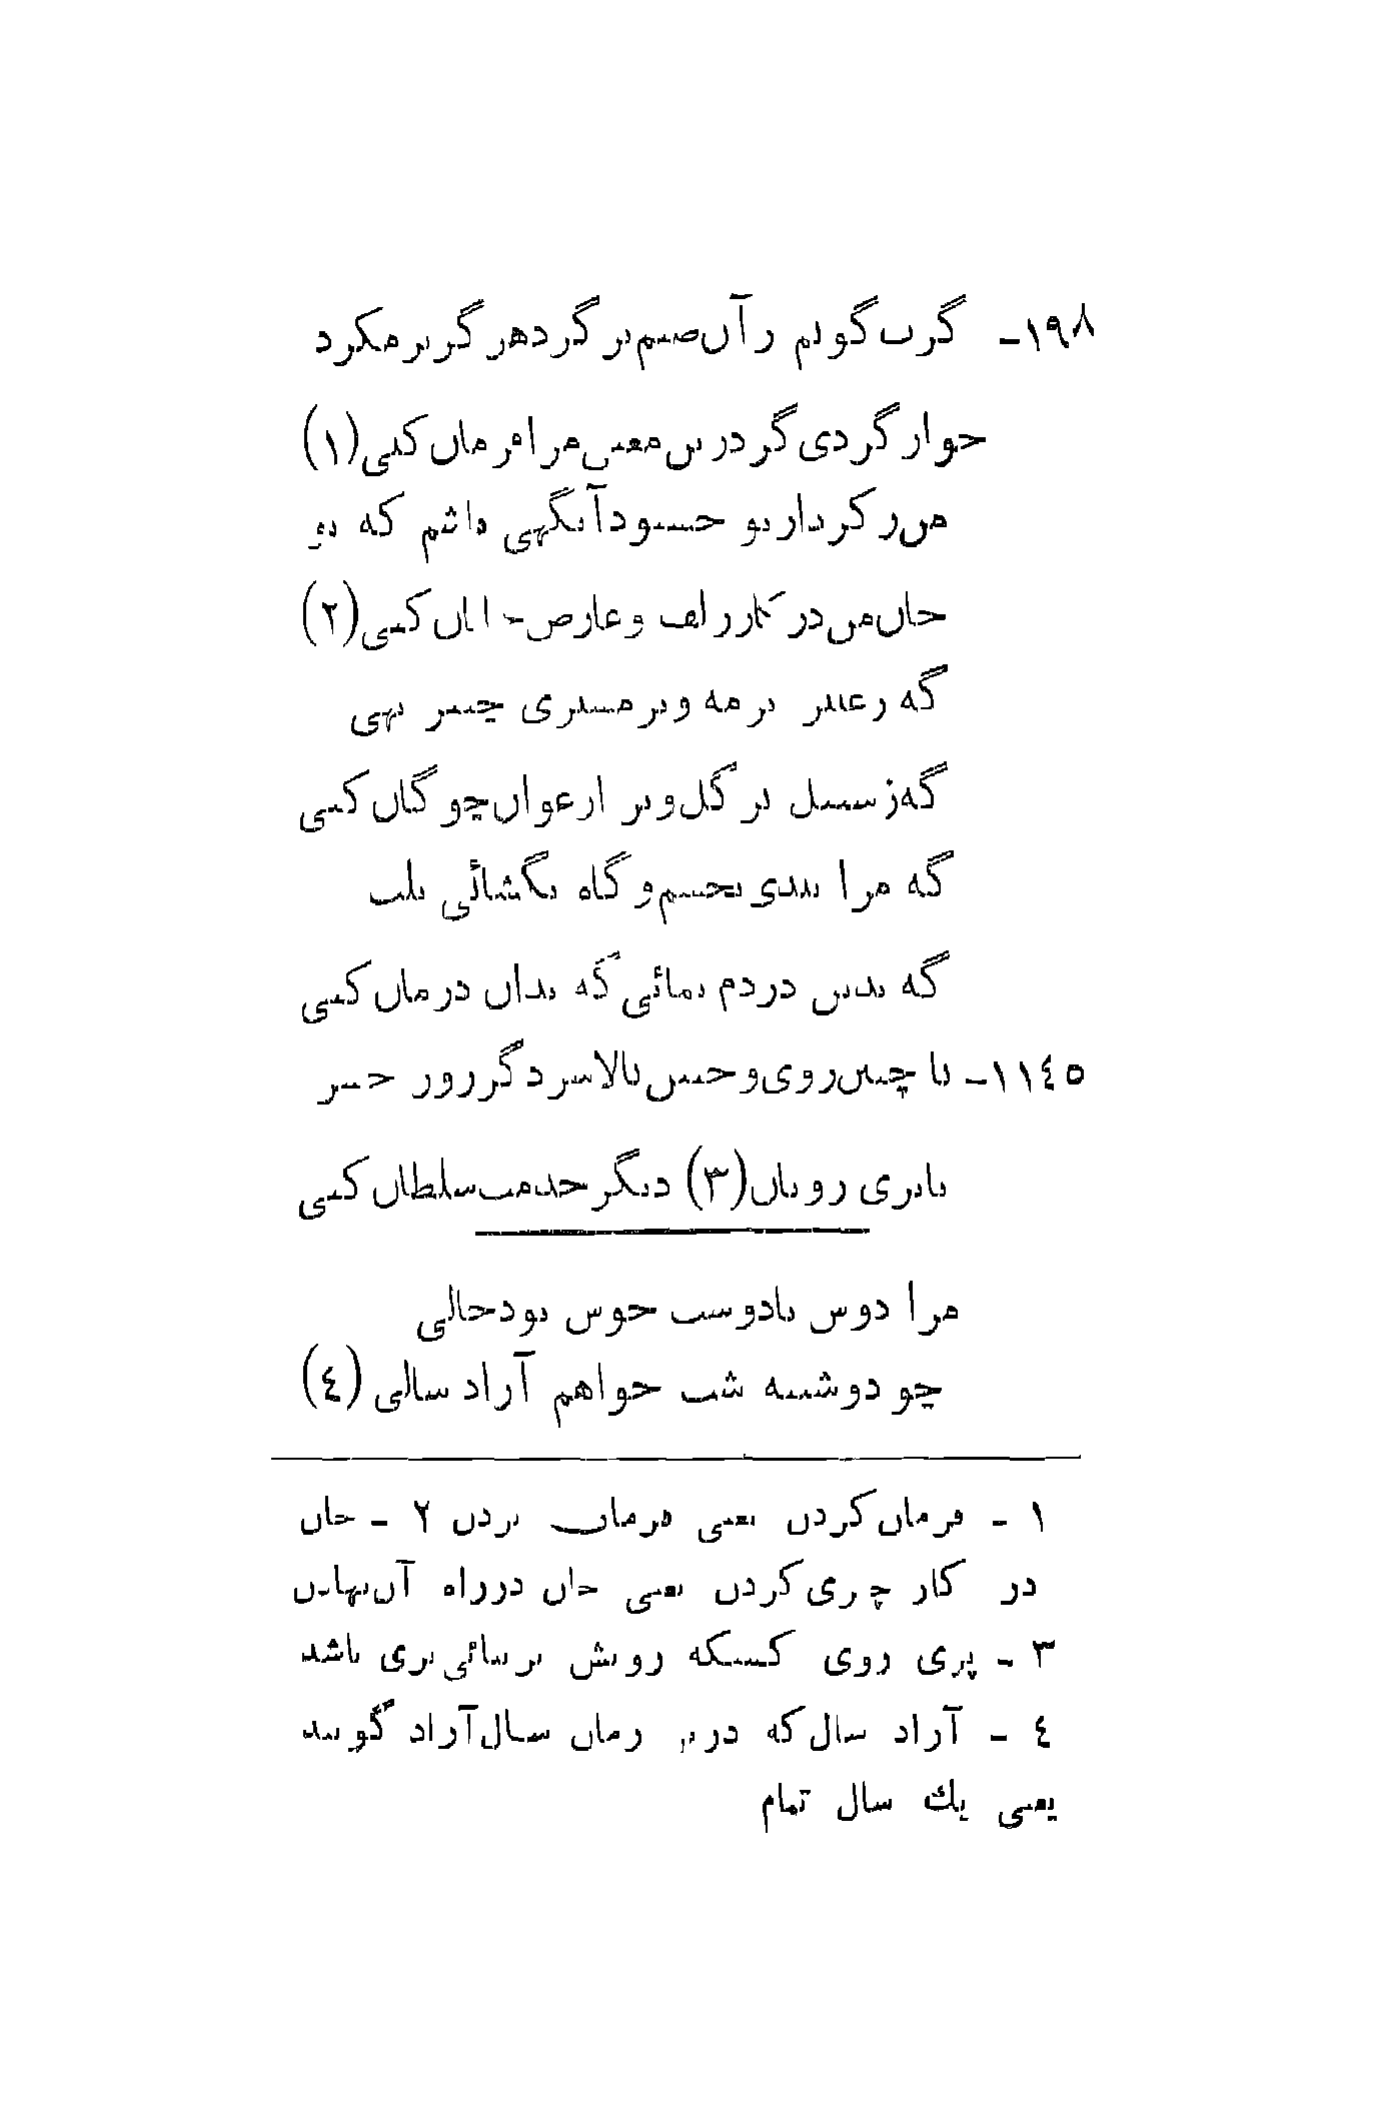 ١٩٨- گرت گویم زآن صنم بر گرد هر گز بر مگرد
خوار گردی گر درین معنی مرا فرمان کنی (۱)
من ز کردار تو خشنود آنگهی باشم که تو
جان من در کار زلف و عارض جانان کنی (۲)
گه ز عنبر بر مه و بر مشتری چنبر نهی
گه ز سنبل بر گل و بر ارغوان چوگان کنی
گه مرا بندی بچشم و گاه بگشائی بلب
گه بدین دردم نمائی گه بدان درمان کنی
١١٤٥- با چنین روی و چنین بالا سزد گر روز
با پری رویان (۳) دیگر خدمت سلطان کنی
مرا دوش با دوست خوش بود حالی
چو دوشینه شب خواهم آزاد سالی (٤)
۱ - فرمان کردن یعنی فرمان بردن ۲ - جان
در کار چیزی کردن یعنی جان در راه آن نهادن
۳ - پری روی کسیکه رویش بزیبائی پری باشد
٤ - آزاد سال که درین زمان سال آزاد گویند
یعنی یك سال تمام